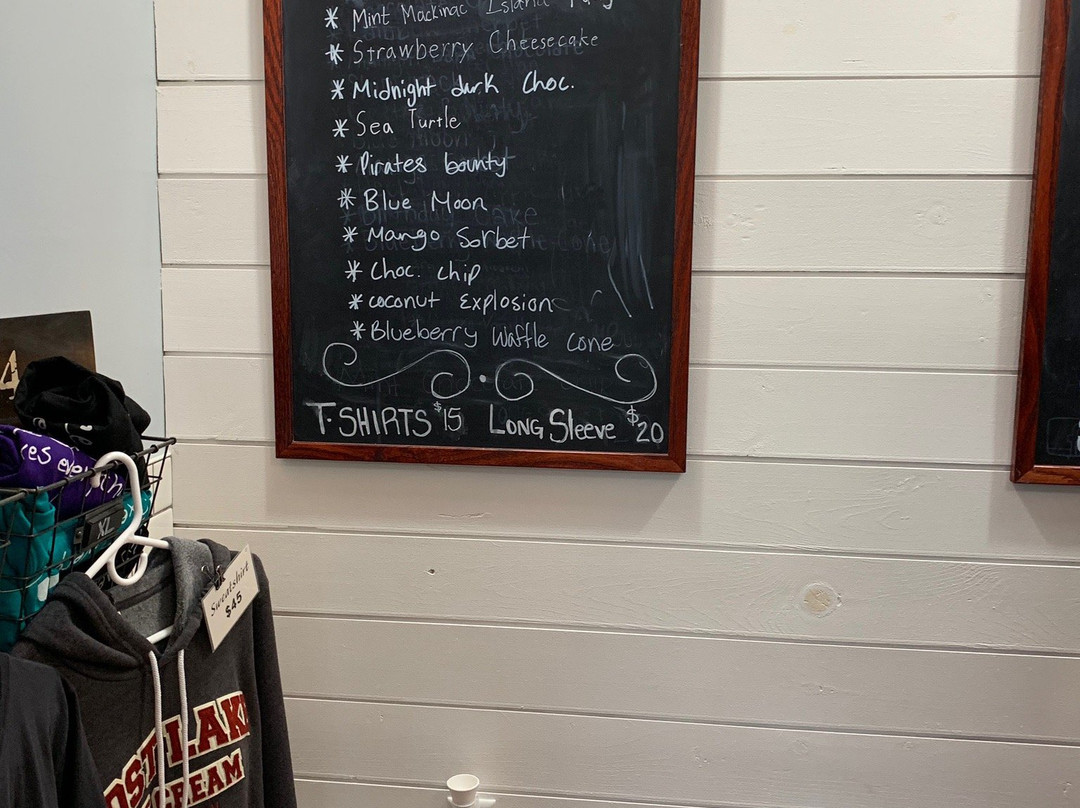 * Mint Mackinac Island
* Strawberry Cheesecake
* Midnight dark Choc.
* Sea Turtle
* Pirates bounty
* Blue Moon
* Mango Sorbet
* Choc. chip
* coconut Explosion
* Blueberry Waffle cone
T-SHIRTS $15 Long Sleeve $20
4
XL
Sweatshirt
$45